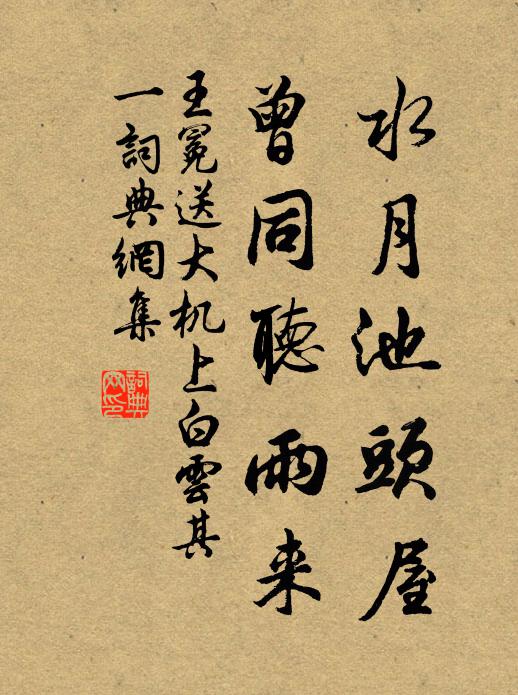 水月池頭屋
曾同聽雨来
王冕送大机上白雲其
一詞典網集
詞典網印